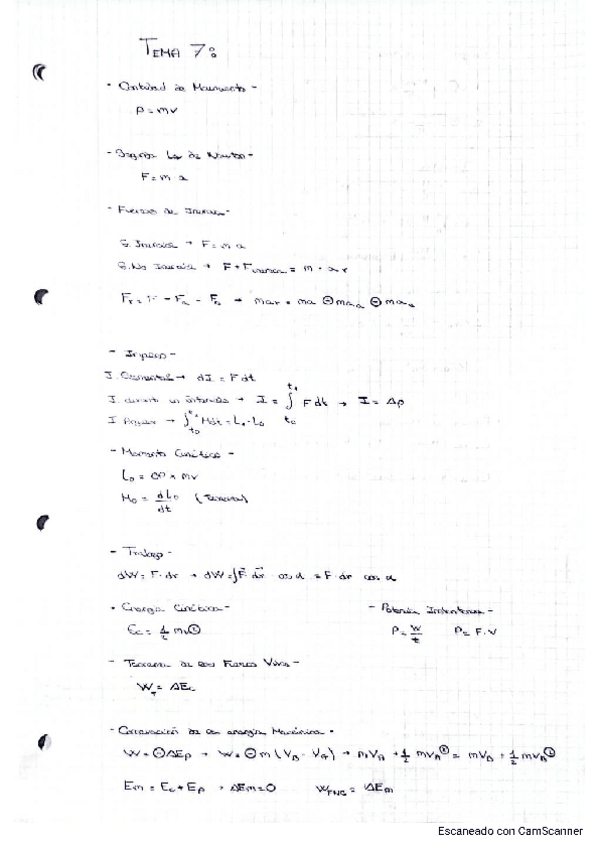 TEMA 7:
• Cantidad de Movimiento -
P = mv
- Segunda Ley de Newton -
F = m a
- Fuerzas de Inercia -
S. Inercial → F = m a
S. No Inercial → F + F inercia = m · a r
Fr = F - Fa - Fc → mar = ma ⊖ maa ⊖ mac
- Impulso -
I. Elemental → dI = F dt
I. durante un intervalo → I = ∫ t0 t1 F dt → I = Δp
I Angular → ∫ t0 t1 M dt = L1 - L0
- Momento Cinético -
L0 = × mv
M0 = dL0/dt (Teorema)
- Trabajo -
dW = F · dr → dW = ∫F · dr cos α = F · dr cos α
• Energía Cinética -
Ec = 1/2 mv²
- Potencia Instantánea -
P = W/t P = F · V
- Teorema de las Fuerzas Vivas -
W = ΔEc
- Conservación de la energía Mecánica •
W = ⊖ΔEp → W = ⊖m (VB - VA) → mVA + 1/2 mvA² = mVB + 1/2 mvB²
Em = Ec + Ep → ΔEm = 0 WFNC = ΔEm
Escaneado con CamScanner